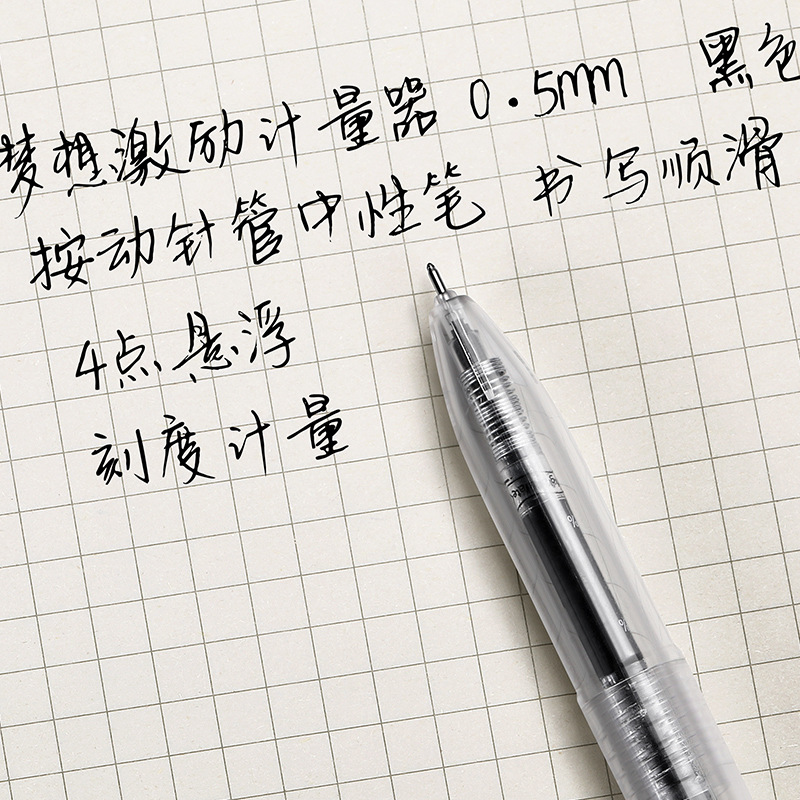 梦想激励计量器 0.5mm 黑色
按动针管中性笔 书写顺滑
4点悬浮
刻度计量